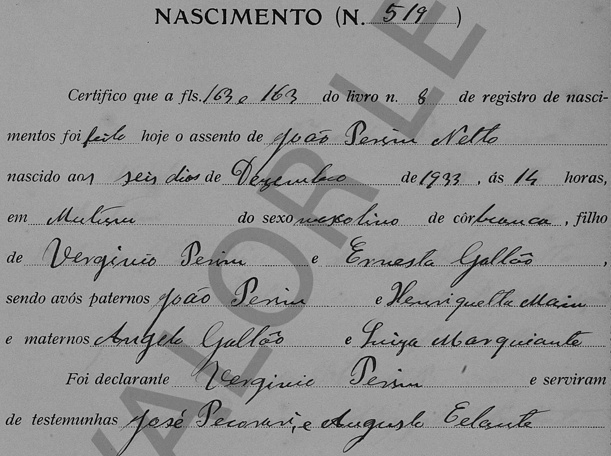 NASCIMENTO (N. 519)
Certifico que a fls. 163 e 163 do livro n. 8 de registro de nasci-
mentos foi feito hoje o assento de João Perin Netto
nascido aos seis dias de Dezembro de 1933, ás 14 horas,
em Mutum do sexo masculino de côr branca, filho
de Verginio Perin e Ernesta Gallão,
sendo avós paternos João Perin e Henriquetta
e maternos Angelo Gallão e Luiza Marquiante
Foi declarante Verginio Perin e serviram
de testemunhas José Pecorari, e Augusto
VALOR LE